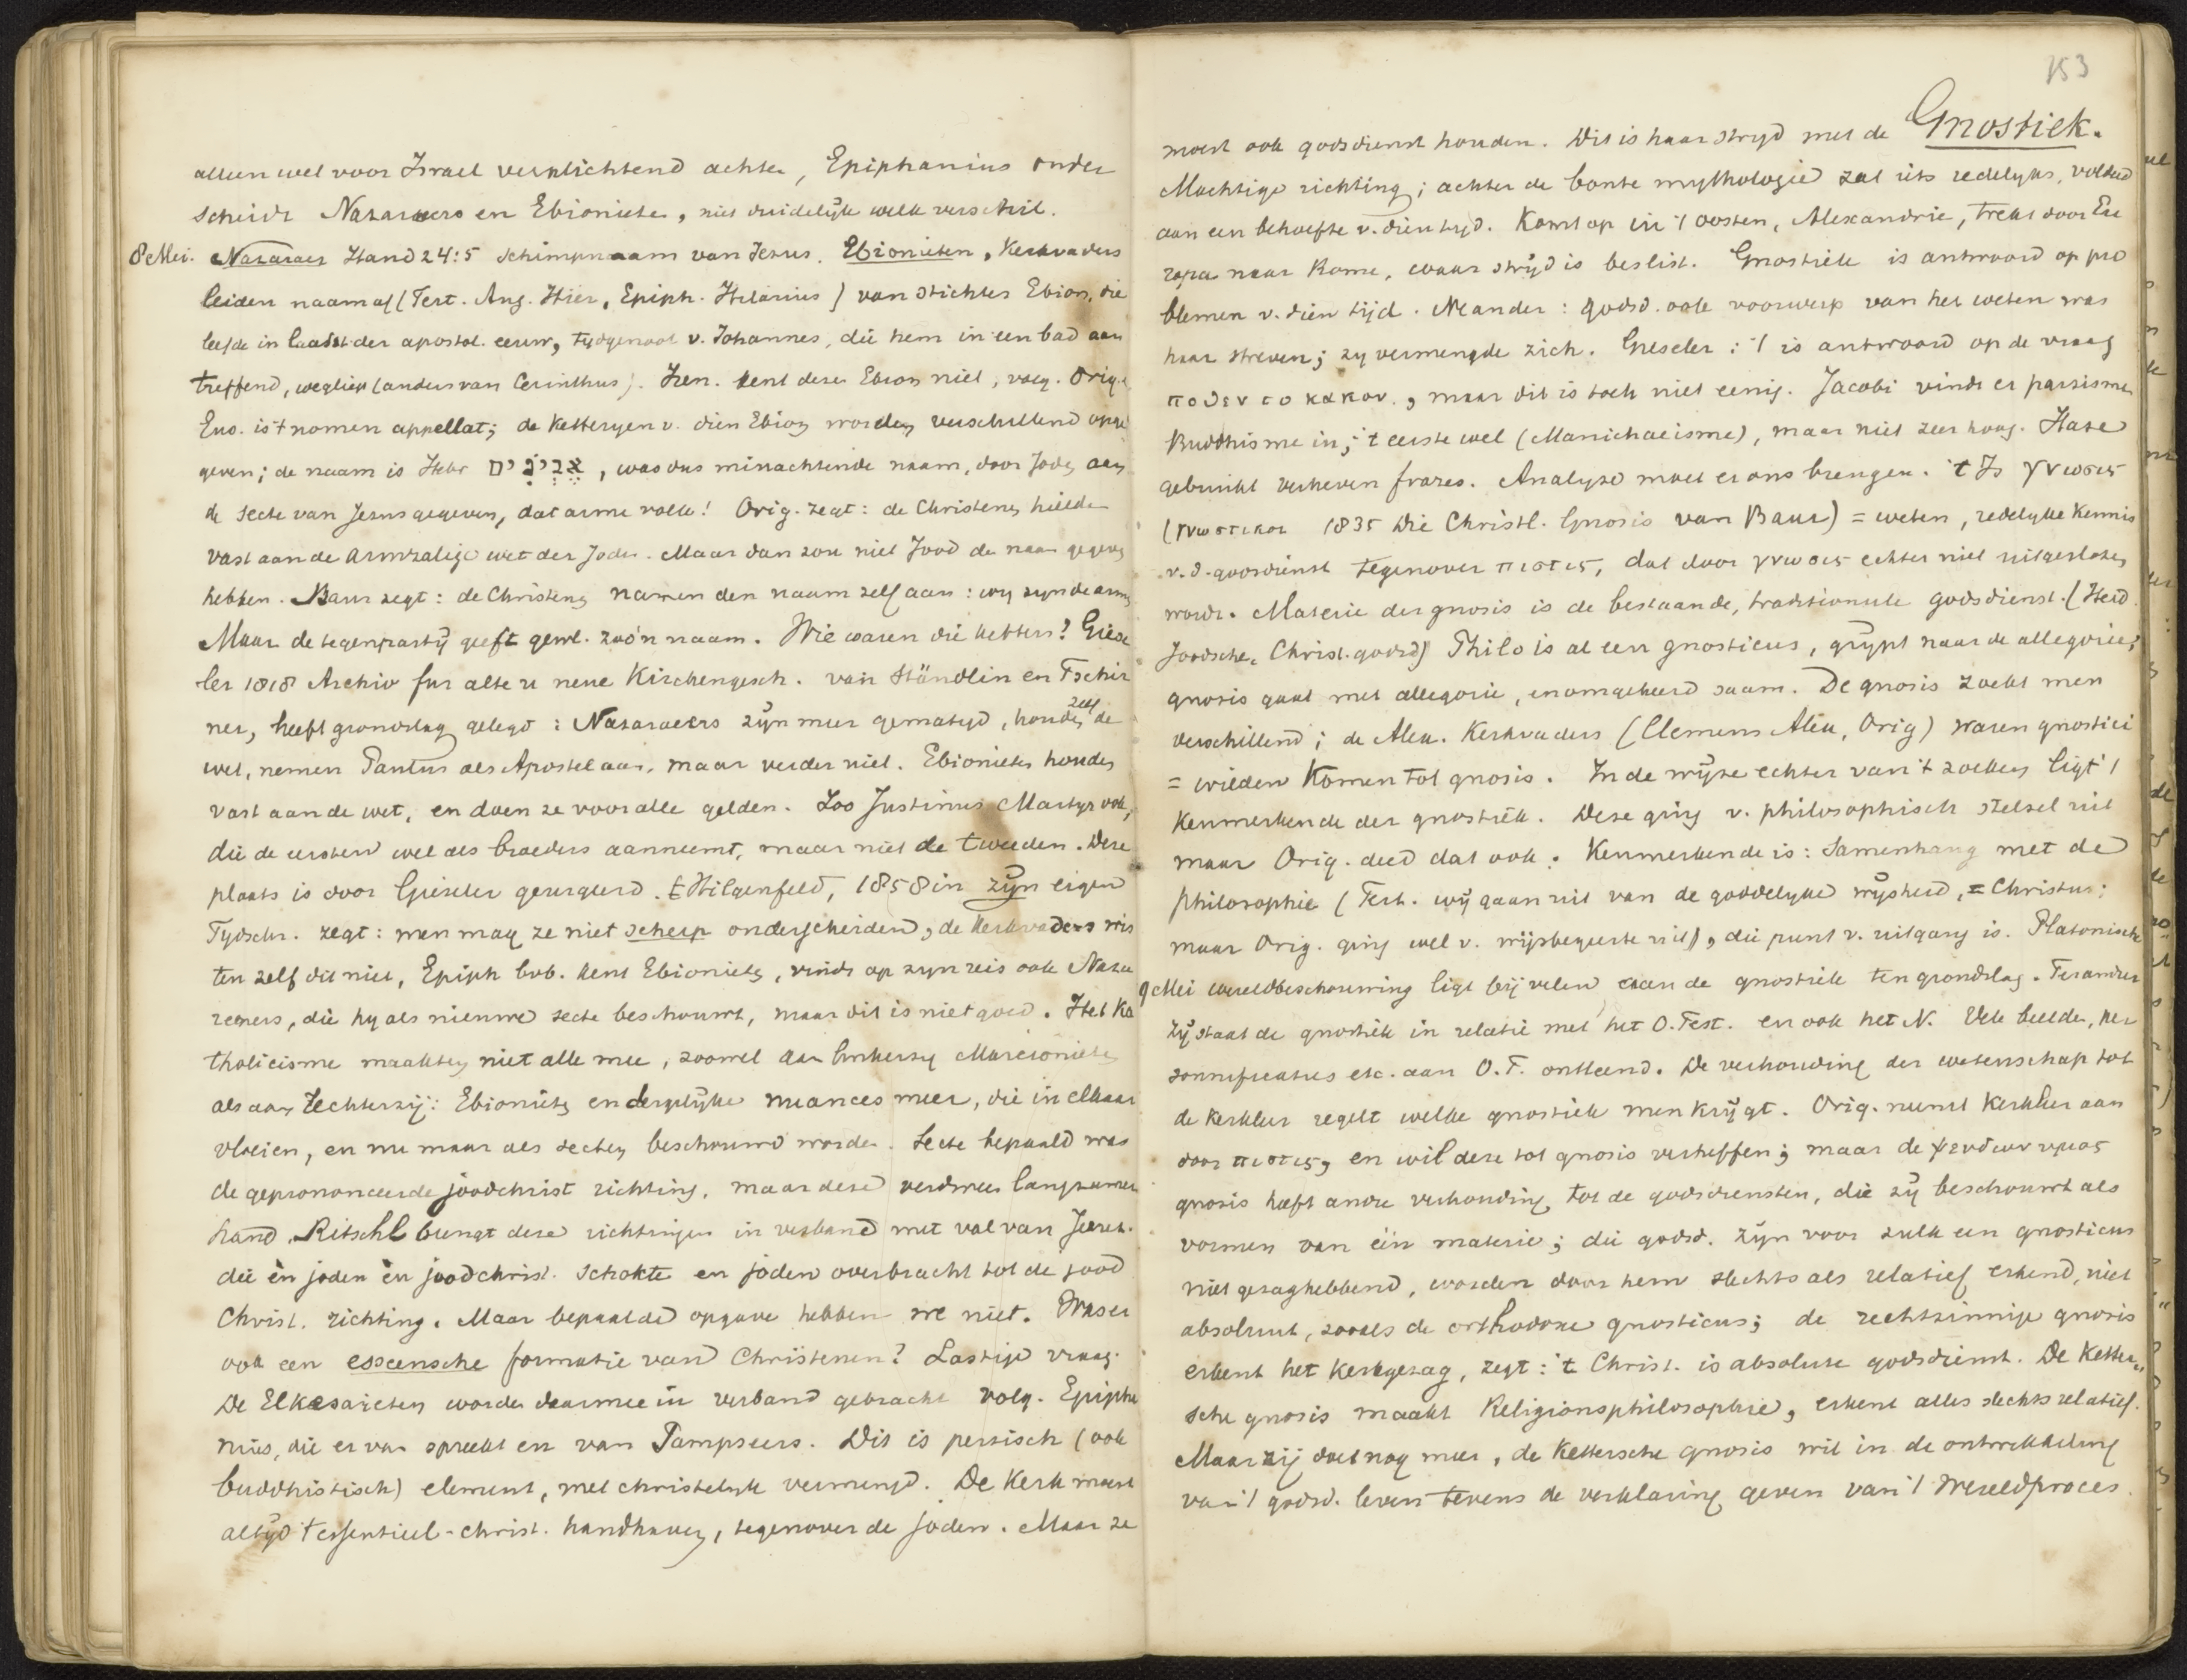 alleen wel voor Israel verplichtend achte, Epiphanius onder
scheidt Nazaraeers en Ebionieten, niet duidelijk welk verschil.
8 Mei. Nazaraeer Hand 24:5 schimpnaam van Jezus. Ebionieten, Kerkvaders
leiden naam af (Tert. Aug. Hier, Epiph. Hilarius) van stichter Ebion, die
leefde in laatst der apostol. eeuw, tijdgenoot v. Johannes, die hem in een bad aan
treffend, wegliep (anders van Cerinthus). Iren. kent deze Ebion niet, volg. Orig.
Eus. is 't nomen appellat; de ketteryen v. dien Ebion worden verschillend opge
geven; de naam is Hebr אֶבְיֹנִים, was dus minachtende naam, door Joden aan
de secte van Jezus gegeven, dat arme volk! Orig. zegt: de Christenen hielde
vast aan de armzalige wet der Joden. Maar dan zou niet Jood de naam gegeven
hebben. Baur zegt: de Christenen namen den naam zelf aan: wy zyn de armen
Maar de tegenpartij geeft gewl. zoo'n naam. Wie waren die ketters? Giese
ler 1818 Archiv fur alte u neue Kirchengesch. van Ständlin en Tschir
ner, heeft grondslag gelegd: Nazaraeers zijn meer gematigd, houden zelf de
wet, nemen Paulus als Apostel aan, maar verder niet. Ebionieten houden
vast aan de wet, en doen ze voor alle gelden. Zoo Justinus Martyr ook,
die de eersten wel als broeders aanneemt, maar niet de tweeden. Deze
plaats is door Gieseler geurgeerd. Hilgenfeld, 1858 in zijn eigen
Tijdschr. zegt: men mag ze niet scherp onderscheiden, de Kerkvaders wis
ten zelf dit niet, Epiph bvb. kent Ebionieten, vindt op zyn reis ook Naza
reeners, die hy als nieuwe secte beschouwt, maar dit is niet goed. Het Ka
tholicisme maakten niet alle mee, zoowel aan linkerzy Marcionieten
als aan rechterzij: Ebionieten en dergelijke nuances meer, die in elkaar
vloeien, en nu maar als secten beschouwd worden. Secte bepaald was
de geprononceerde joodchrist richting, maar deze verdween langzamer
hand. Ritschl brengt deze richtingen in verband met val van Jeruz.
die èn joden èn joodchrist. schokte en joden overbracht tot de jood
Christ. richting. Maar bepaalde opgave hebben we niet. Was er
ook een esseensche formatie van Christenen? Lastige vraag.
De Elkesaieten worden daarmee in verband gebracht volg. Epipha
nius, die er van spreekt en van Sampseers. Dit is persisch (ook
buddhistisch) element, met christelijk vermengd. De Kerk moest
altijd 't essentieel-christ. handhaven, tegenover de joden. Maar ze
153
moest ook godsdienst houden. Dit is haar strijd met de Gnostiek.
Machtige richting; achter de bonte mythologie zat iets redelyks, voldeed
aan een behoefte v. dien tijd. Komt op in 't oosten, Alexandrie, trekt door Eu
ropa naar Rome, waar strijd is beslist. Gnostiek is antwoord op pro
blemen v. dien tijd. Neander: godsd. ook voorwerp van het weten was
haar streven; zy vermengde zich. Gieseler: 't is antwoord op de vraag
ποθεν το κακον, maar dit is toch niet eenig. Jacobi vindt er parzisme
Buddhisme in; 't eerste wel (Manichaeisme), maar niet zeer hoog. Hase
gebruikt verheven frazes. Analyse moet er ons brengen. 't Is γνωσις
(γνωστικοι 1835 Die Christl. Gnosis van Baur) = weten, redelyke kennis
v. d. godsdienst tegenover πιστις, dat door γνωσις echter niet uitgesloten
wordt. Materie der gnosis is de bestaande, traditioneele godsdienst. (Heid.
Joodsche, Christ. godsd) Philo is al een gnosticus, grijpt naar de allegorie;
gnosis gaat met allegorie, en omgekeerd saam. De gnosis zoekt men
verschillend; de Alex. Kerkvaders (Clemens Alex, Orig) waren gnostici
= wilden komen tot gnosis. In de wijze echter van 't zoeken ligt 't
kenmerkende der gnostiek. Deze ging v. philosophisch stelsel uit
maar Orig. deed dat ook. Kenmerkende is: Samenhang met de
philosophie (Tert. wij gaan uit van de goddelijke wijsheid, = Christus;
maar Orig. ging wel v. wijsbegeerte uit), die punt v. uitgang is. Platonische
9 Mei wereldbeschouwing ligt bij velen aan de gnostiek ten grondslag. Ter andere
zij staat de gnostiek in relatie met het O. Test. en ook het N. Vele beelden, per
sonnificaties etc. aan O. T. ontleend. De verhouding der wetenschap tot
de kerkleer regelt welke gnostiek men krijgt. Orig. neemt kerkleer aan
door πιστις, en wil deze tot gnosis verheffen; maar de ψευδωνυμος
gnosis heeft andre verhouding tot de godsdiensten, die zij beschouwt als
vormen van één materie; die godsd. zijn voor zulk een gnosticus
niet gezaghebbend, worden door hem slechts als relatief erkend, niet
absoluut, zooals de orthodoxe gnosticus; de rechtzinnige gnosis
erkent het kerkgezag, zegt: 't Christ. is absolute godsdienst. De ketter-
sche gnosis maakt Religionsphilosophie, erkent alles slechts relatief.
Maar zij doet nog meer, de kettersche gnosis wil in de ontwikkeling
van 't godsd. leven tevens de verklaring geven van 't wereldproces.